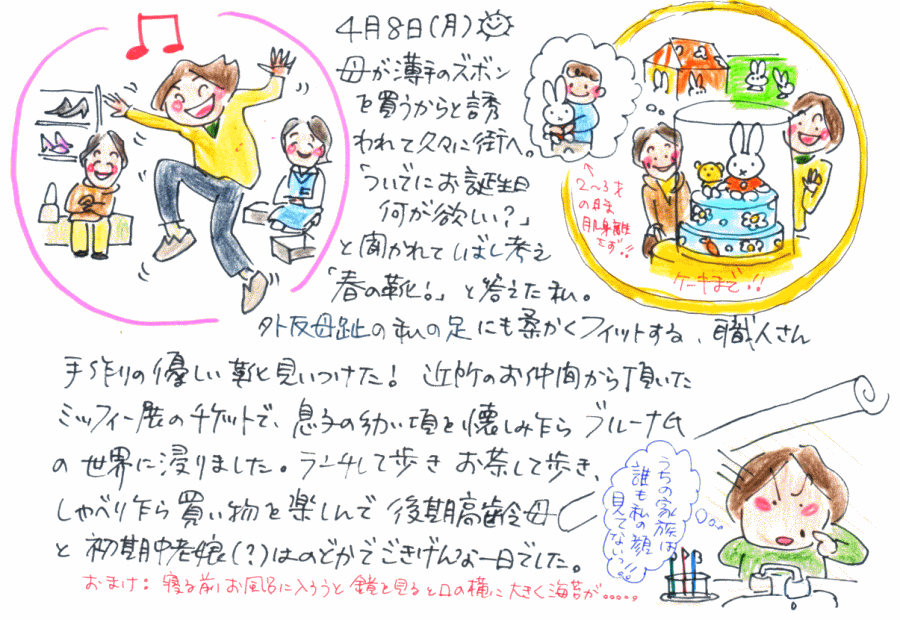 4月8日(月)
母が薄手のズボン
を買うからと誘
われて久々に街へ。
「ついでにお誕生日
何が欲しい?」
と聞かれてしばし考え
「春の靴!」と答えた私。
外反母趾の私の足にも柔かくフィットする、職人さん
手作りの優しい靴と見いつけた! 近所のお仲間から頂いた
ミッフィー展のチケットで、息子の幼い頃を懐しみ乍ら ブルーナ氏
の世界に浸りました。ランチして歩き お茶して歩き、
しゃべり乍ら買い物を楽しんで 後期高齢母
と 初期中老娘(?)はのどかでごきげんな一日でした。
おまけ: 寝る前お風呂に入ろうと鏡を見ると口の横に大きく海苔が……
2〜3才
の頃
肌身離
さず!!
ケーキまで!!
うちの家族は
誰も私の顔
見てない!!